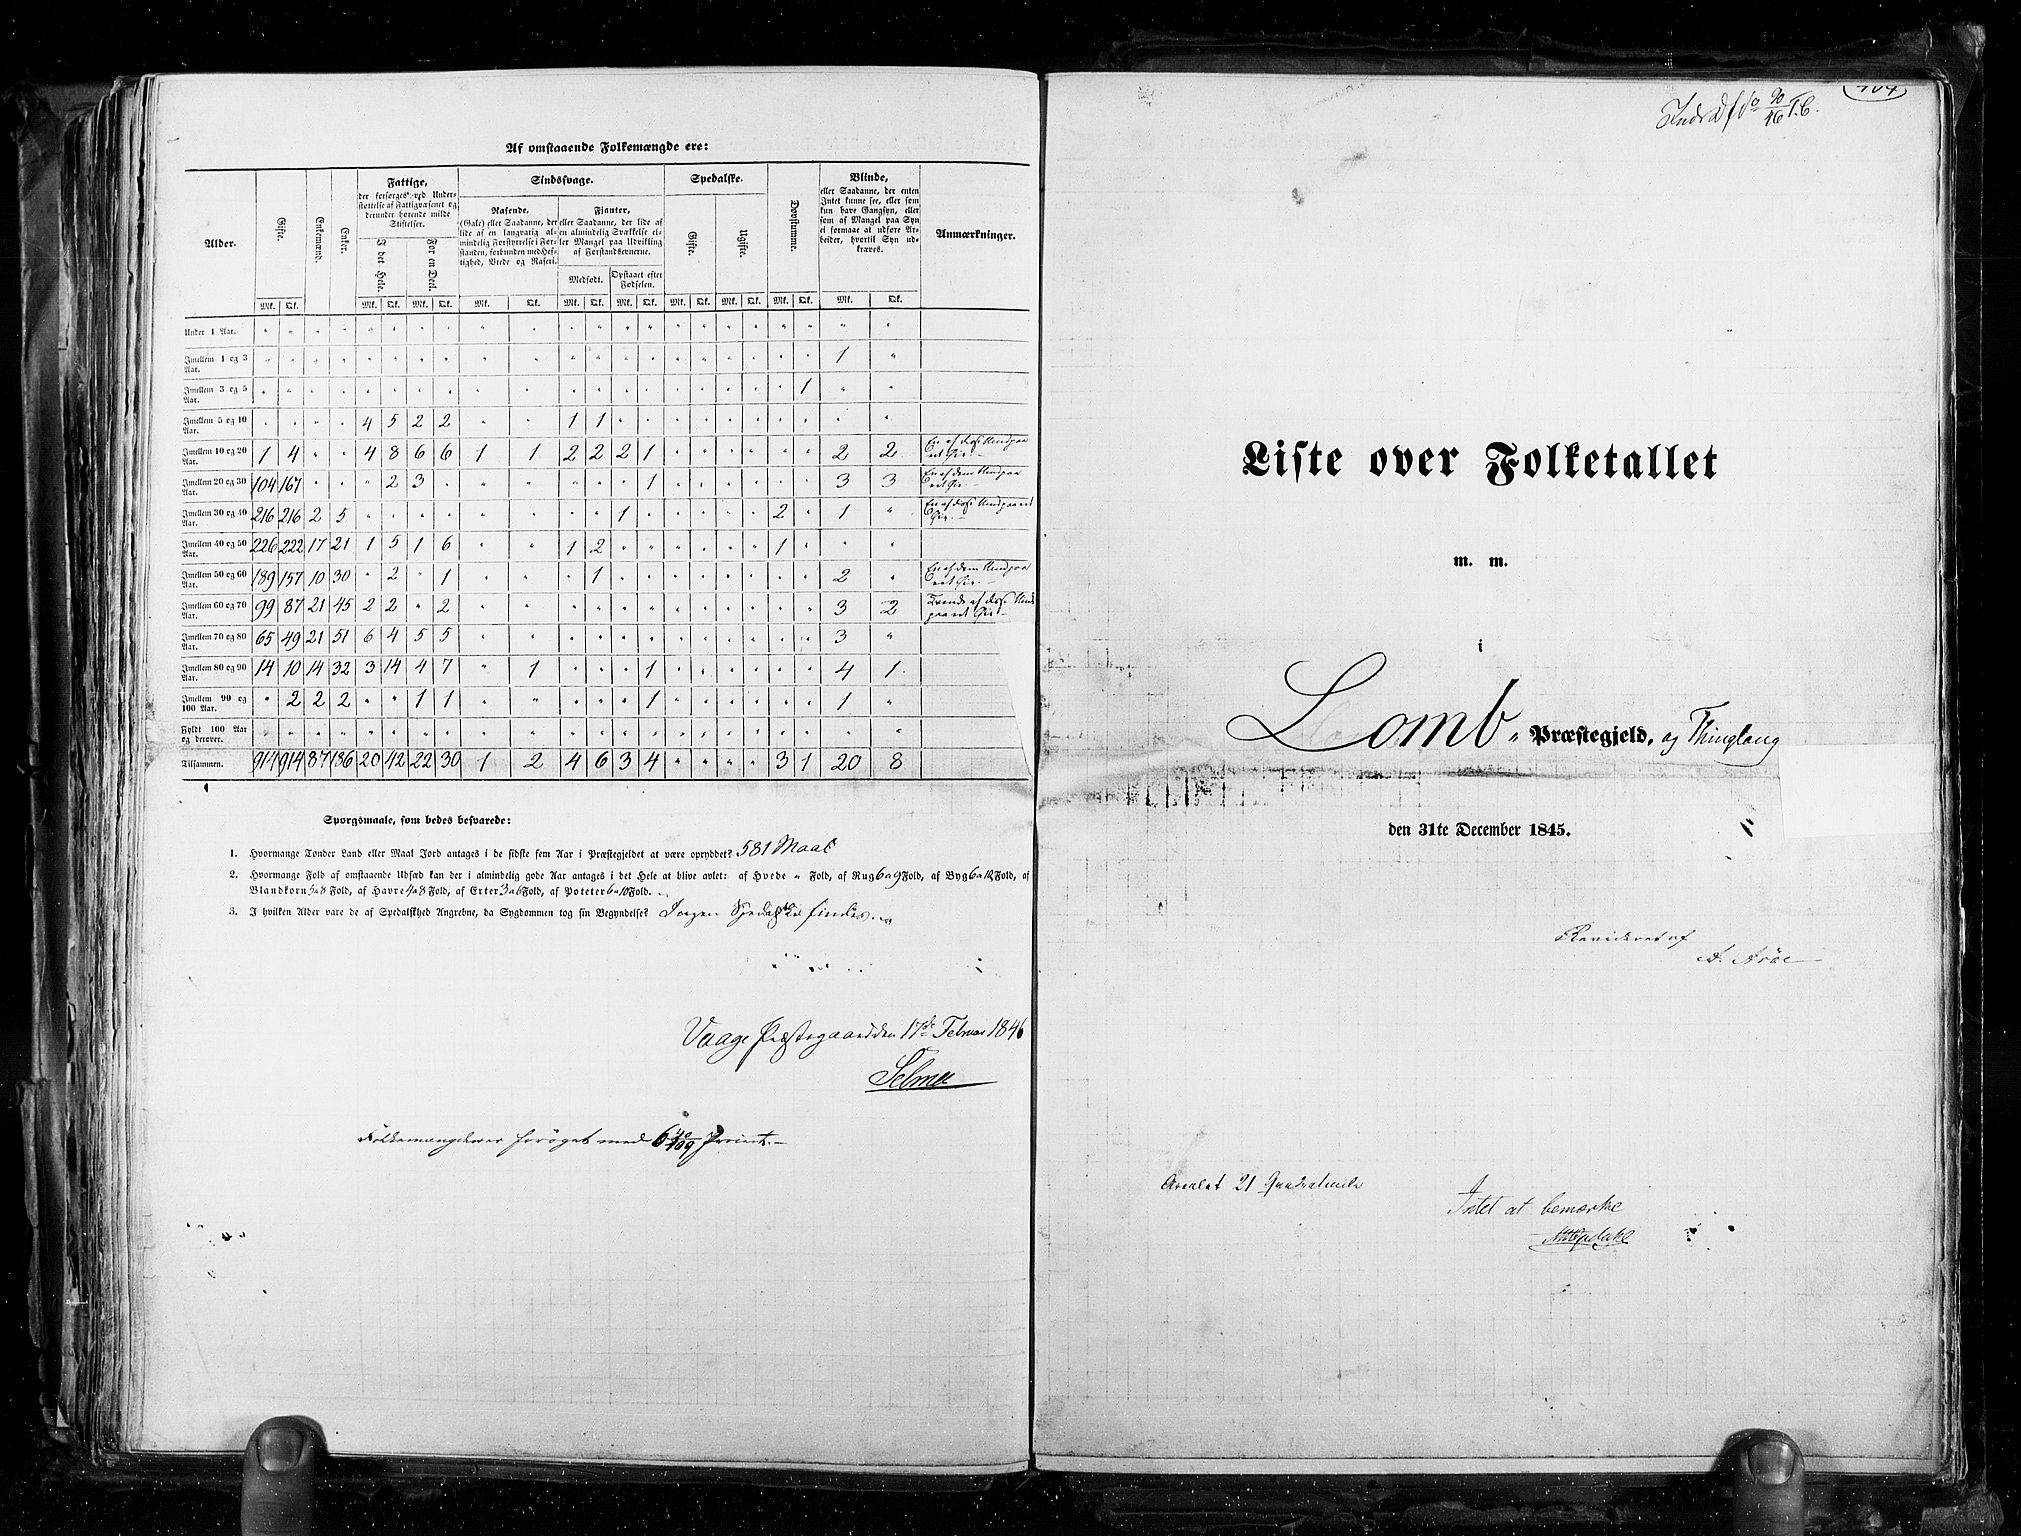 Af omstaaende Folkemængde ere:
Alder. Gifte. Enkemænd. Enker. Fattige, der forsørges ved Understøttelse af Fattigvæsenet og derunder hørende milde Stiftelser. Sindssvage. Spedalske. Døvstumme. Blinde, eller Saadanne, der enten Intet kunne see, eller som kun have Gangsyn, eller som af Mangel paa Syn ei formaae at udføre Arbeider, hvortil Syn udkræves. Anmærkninger.
I det Hele. For en Deel. Rasende. (Gale) eller Saadanne, der lide af en langvarig almindelig Forstyrrelse i Forstanden, forbunden med Heftighed, Vrede og Raseri. Fjanter, eller Saadanne, der lide af en almindelig Svækkelse eller Mangel paa Udvikling af Forstandsevnerne. Gifte. Ugifte.
Medfødt. Opstaaet efter Fødselen.
Mk. Qk. Mk. Qk. Mk. Qk. Mk. Qk. Mk. Qk. Mk. Qk. Mk. Qk. Mk. Qk. Mk. Qk. Mk. Qk.
Under 1 Aar. " " " " " " " " " " " " " " " " " " " " " "
Imellem 1 og 3 Aar. " " " " " " " " " " " " " " " " " " " " 1 "
Imellem 3 og 5 Aar. " " " " " " " " " " " " " " " " " " " 1 " "
Imellem 5 og 10 Aar. " " " " 4 5 2 2 " " 1 1 " " " " " " " " " "
Imellem 10 og 20 Aar. 1 4 " " 4 8 6 6 1 1 2 2 2 1 " " " " " " 2 2
Imellem 20 og 30 Aar. 104 167 " " " 2 3 " " " " " " 1 " " " " " " 3 3
Imellem 30 og 40 Aar. 216 216 2 5 " " " " " " " " 1 " " " " " 2 " 1 "
Imellem 40 og 50 Aar. 226 222 17 21 1 5 1 6 " " 1 2 " " " " " " 1 " " "
Imellem 50 og 60 Aar. 189 157 10 30 " 2 " 1 " " " 1 " " " " " " " " 2 "
Imellem 60 og 70 Aar. 99 87 21 45 2 2 " 2 " " " " " " " " " " " " 3 2
Imellem 70 og 80 Aar. 65 49 21 51 6 4 5 5 " " " " " " " " " " " " 3 "
Imellem 80 og 90 Aar. 14 10 14 32 3 14 4 7 " 1 " " " 1 " " " " " " 4 1
Imellem 90 og 100 Aar. " 2 2 2 " " 1 1 " " " " " 1 " " " " " " 1 "
Fyldt 100 Aar og derover. " " " " " " " " " " " " " " " " " " " " " "
Tilsammen. 914 914 87 186 20 42 22 30 1 2 4 6 3 4 " " " " 3 1 20 8
Spørgsmaale, som bedes besvarede:
1. Hvormange Tønder Land eller Maal Jord antages i de sidste fem Aar i Præstegjeldet at være opryddet? 581 Maal
2. Hvormange Fold af omstaaende Udsæd kan der i almindelig gode Aar antages i det Hele at blive avlet: af Hvede " Fold, af Rug 6 a 9 Fold, af Byg 6 a 12 Fold, af
Blandkorn 5 a 8 Fold, af Havre 4 a 8 Fold, af Erter 3 a 6 Fold, af Poteter 6 a 10 Fold.
3. I hvilken Alder vare de af Spedalskhed Angrebne, da Sygdommen tog sin Begyndelse? Ingen Spedalske findes.
Vaage Præstegaard den 17de Februar 1846
Selmer
Folkemængden er forøget med 6 40/109 Procent.
T. C.
Liste over Folketallet
m. m.
i
Lomb " Præstegjeld, og Thinglaug
den 31te December 1845.
Revideret af
A. Arøe
Arealet 21 Quadratmile
Intet at bemærke